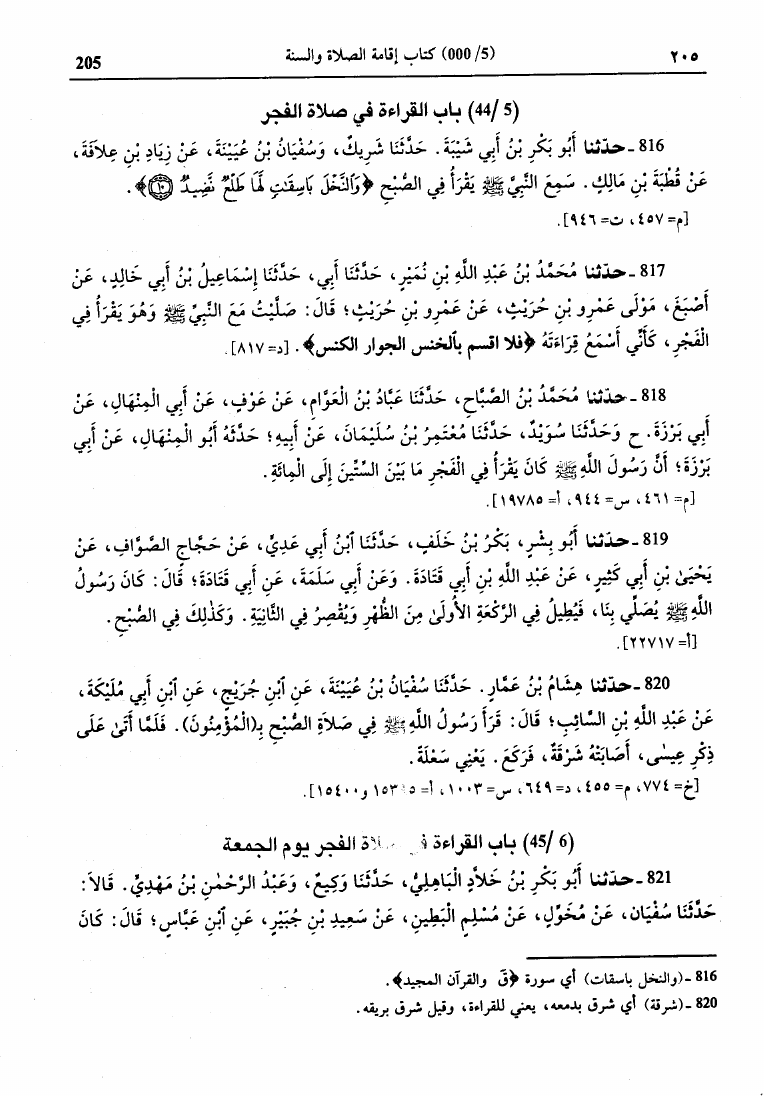 ٢٠٥ (000/5) كتاب إقامة الصلاة والسنة 205
(44/5) باب القراءة في صلاة الفجر
816 ـ حدّثنا أَبُو بَكْرِ بْنُ أَبِي شَيْبَةَ. حَدَّثَنَا شَرِيكٌ، وَسُفْيَانُ بْنُ عُيَيْنَةَ، عَنْ زِيَادِ بْنِ عِلاَقَةَ،
عَنْ قُطْبَةَ بْنِ مَالِكٍ. سَمِعَ النَّبِيَّ ﷺ يَقْرَأُ فِي الصُّبْحِ ﴿وَٱلنَّخْلَ بَاسِقَٰتٍ لَّهَا طَلْعٌ نَّضِيدٌ ١٠﴾.
[م= ٤٥٧، ت= ٩٤٦].
817 ـ حدّثنا مُحَمَّدُ بْنُ عَبْدِ اللَّهِ بْنِ نُمَيْرٍ، حَدَّثَنَا أَبِي، حَدَّثَنَا إِسْمَاعِيلُ بْنُ أَبِي خَالِدٍ، عَنْ
أَصْبَغَ، مَوْلَى عَمْرِو بْنِ حُرَيْثٍ، عَنْ عَمْرِو بْنِ حُرَيْثٍ؛ قَالَ: صَلَّيْتُ مَعَ النَّبِيِّ ﷺ وَهُوَ يَقْرَأُ فِي
الْفَجْرِ، كَأَنِّي أَسْمَعُ قِرَاءَتَهُ ﴿فلا اقسم بٱلخنس الجوار الكنس﴾. [د= ٨١٧].
818 ـ حدّثنا مُحَمَّدُ بْنُ الصَّبَّاحِ، حَدَّثَنَا عَبَّادُ بْنُ الْعَوَّامِ، عَنْ عَوْفٍ، عَنْ أَبِي الْمِنْهَالِ، عَنْ
أَبِي بَرْزَةَ. ح وَحَدَّثَنَا سُوَيْدٌ، حَدَّثَنَا مُعْتَمِرُ بْنُ سُلَيْمَانَ، عَنْ أَبِيهِ؛ حَدَّثَهُ أَبُو الْمِنْهَالِ، عَنْ أَبِي
بَرْزَةَ؛ أَنَّ رَسُولَ اللَّهِ ﷺ كَانَ يَقْرَأُ فِي الْفَجْرِ مَا بَيْنَ السِّتِّينَ إِلَى الْمِائَةِ.
[م= ٤٦١، س= ٩٤٤، أ= ١٩٧٨٥].
819 ـ حدّثنا أَبُو بِشْرٍ، بَكْرُ بْنُ خَلَفٍ، حَدَّثَنَا ٱبْنُ أَبِي عَدِيٍّ، عَنْ حَجَّاجِ الصَّوَّافِ، عَنْ
يَحْيَىٰ بْنِ أَبِي كَثِيرٍ، عَنْ عَبْدِ اللَّهِ بْنِ أَبِي قَتَادَةَ. وَعَنْ أَبِي سَلَمَةَ، عَنْ أَبِي قَتَادَةَ؛ قَالَ: كَانَ رَسُولُ
اللَّهِ ﷺ يُصَلِّي بِنَا، فَيُطِيلُ فِي الرَّكْعَةِ الأُولَىٰ مِنَ الظُّهْرِ وَيُقْصِرُ فِي الثَّانِيَةِ. وَكَذٰلِكَ فِي الصُّبْحِ.
[أ= ٢٢٧١٧].
820 ـ حدّثنا هِشَامُ بْنُ عَمَّارٍ. حَدَّثَنَا سُفْيَانُ بْنُ عُيَيْنَةَ، عَنِ ٱبْنِ جُرَيْجٍ، عَنِ ٱبْنِ أَبِي مُلَيْكَةَ،
عَنْ عَبْدِ اللَّهِ بْنِ السَّائِبِ؛ قَالَ: قَرَأَ رَسُولُ اللَّهِ ﷺ فِي صَلاَةِ الصُّبْحِ بِـ(الْمُؤْمِنُونَ). فَلَمَّا أَتَىٰ عَلَى
ذِكْرِ عِيسَىٰ، أَصَابَتْهُ شَرْقَةٌ، فَرَكَعَ. يَعْنِي سَعْلَةً.
[خ= ٧٧٤، م= ٤٥٥، د= ٦٤٩، س= ١٠٠٣، أ= و١٥٤٠٠].
(45/6) باب القراءة الفجر يوم الجمعة
821 ـ حدّثنا أَبُو بَكْرِ بْنُ خَلاَّدٍ الْبَاهِلِيُّ، حَدَّثَنَا وَكِيعٌ، وَعَبْدُ الرَّحْمٰنِ بْنُ مَهْدِيٍّ. قَالاَ:
حَدَّثَنَا سُفْيَانُ، عَنْ مُخَوَّلٍ، عَنْ مُسْلِمٍ الْبَطِينِ، عَنْ سَعِيدِ بْنِ جُبَيْرٍ، عَنِ ٱبْنِ عَبَّاسٍ؛ قَالَ: كَانَ
816 ـ (والنخل باسقات) أي سورة ﴿قٓ والقرآن المجيد﴾.
820 ـ (شرقة) أي شرق بدمعه، يعني للقراءة، وقيل شرق بريقه.